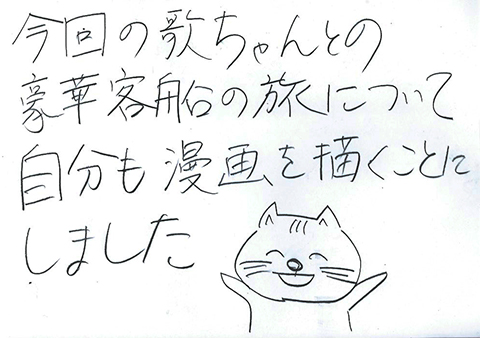 今回の歌ちゃんとの
豪華客船の旅について
自分も漫画を描くことに
しました